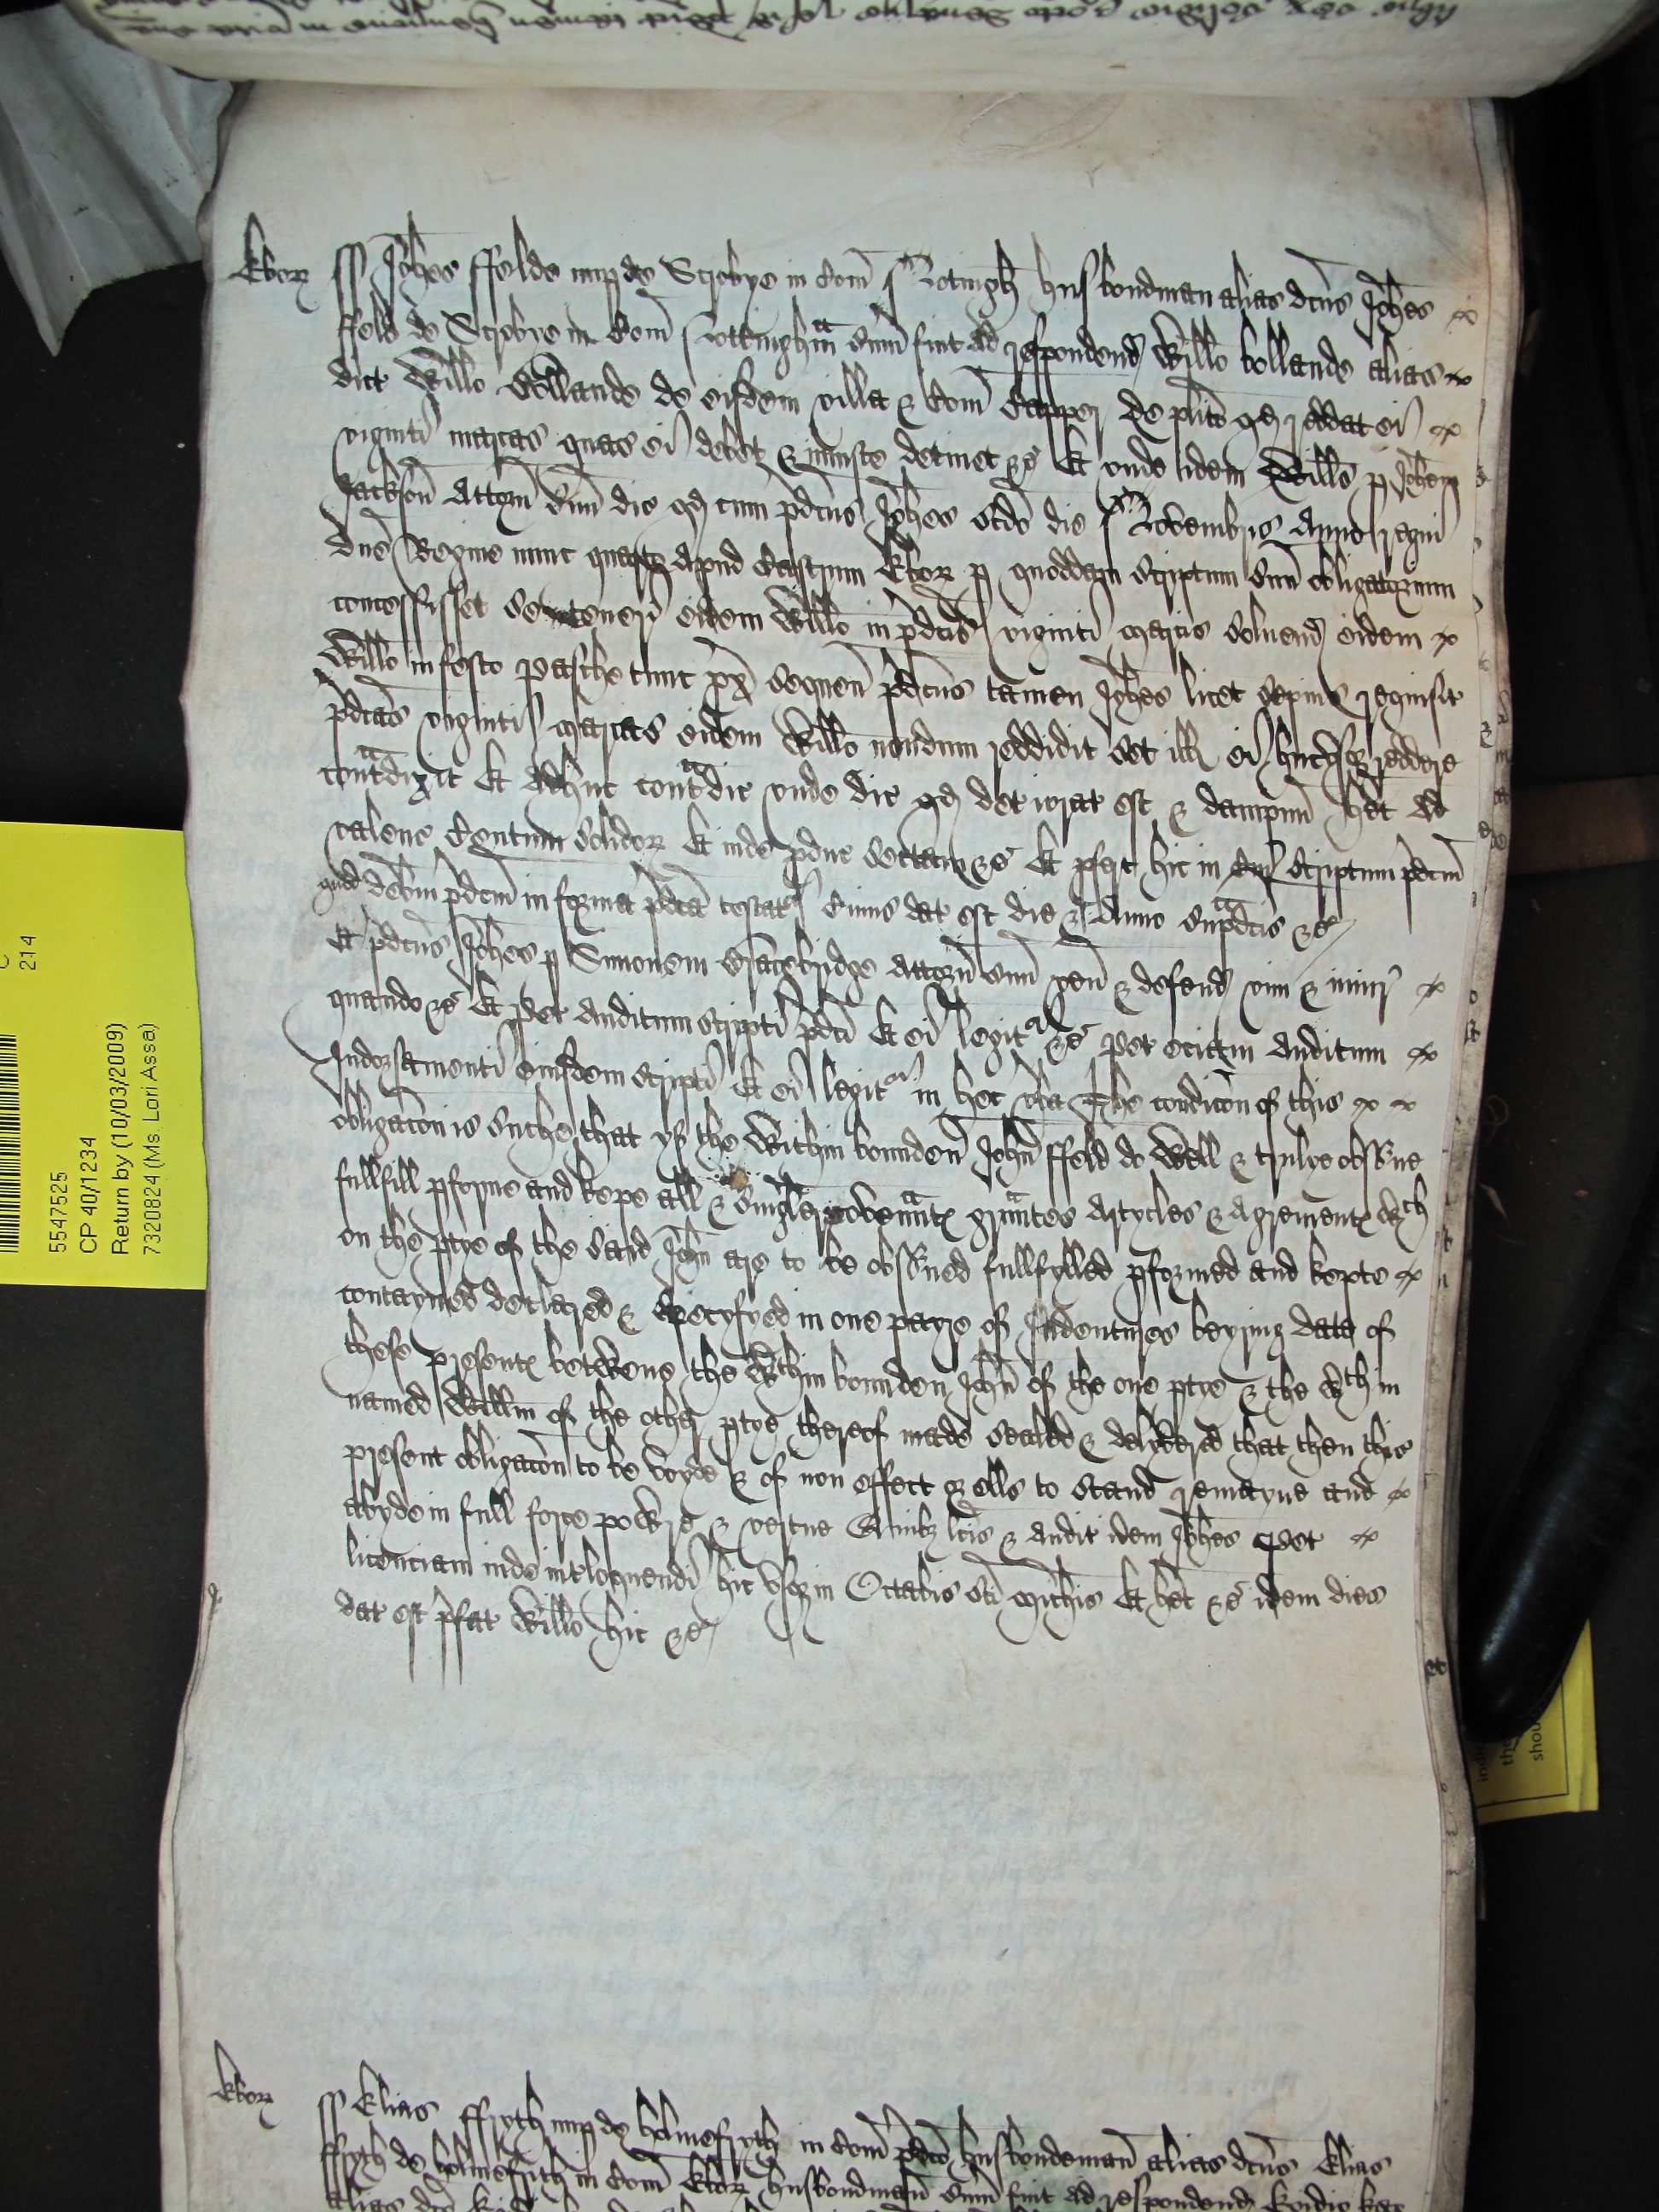 Ebor ss Johes ffelde nup de Scrobye in Com Notingh husbondman alias dcus Johes
ffeld de Scrobye in Com Nottingham sum fuit ad respondend Willo bollande alias
dict Willo Bollande de eisdem villa & Com Capper de plito qd reddat ei
viginti marcas quas ei debet & iniuste detinet &c Et unde idem Wills p Johem
Jackson Attorn suu dic qd cum pdcus Johes scdo die Novembris Anno regni
Dne Regine nunc quarto apud Castrum Ebor p quoddam scriptum suu obligatorium
concessisset se teneri eidem Willo in pdcis viginti marcis solvend eidem
Willo in festo Pasche tunc px sequen pdcus tamen Johes licet sepius requisit
pdcas viginti marcas eidem Willo nondum reddidit set ill ei hucusq reddere
contradixit Et adhuc contradic unde dic qd deteriorat est & dampnu het ad
valenc Centum solidor Et inde pduc sectam &c Et pfert hic in Cur scriptum pdcm
quod debm pdcm in forma pdca testat Cuius dat est die & Anno supradcis &c
Et pdcus Johes p Simonem Attorn suu ven & defend vim & iniur
quando &c Et pet auditum scripti pdci Et ei legitur &c pet eciam auditum
Indorsamenti eiusdem scripti Et ei legitur in hec vba The condicon of this
obligacon is suche that yf the within bounden John ffeld do well & trulye obsrve
fullfill pforme and kepe all & singler covenantes grauntes artycles & agrementes wch
on the ptye of the said John are to be obsrved fullfylled pformed and kepte
contayned declared & specyfyed in one payre of Indentures beyring date of
these presentes betwene the wthin bounden John of the one ptye & the wthin
named Willm of the other ptye thereof made sealed & delyvered that then this
present obligacon to be voyde & of non effect or ells to stand remayne and
abyde in full force powre & vertue Quibz lcis & audit idem Johes pet
licenciam inde intloquendi hic usq in Octabis sci Michis Et het &c idem dies
dat est pfat Willo hic &c
Ebor ss Elias ffryth nup de holmefryth in Com pdco husbondeman alias dcus Elias
ffryth de holmefrith in Com Ebor husbondman sum fuit ad respondend
5547525
CP 40/1234
Return by (10/03/2009)
7320824 (Ms. Lori Assa)
214